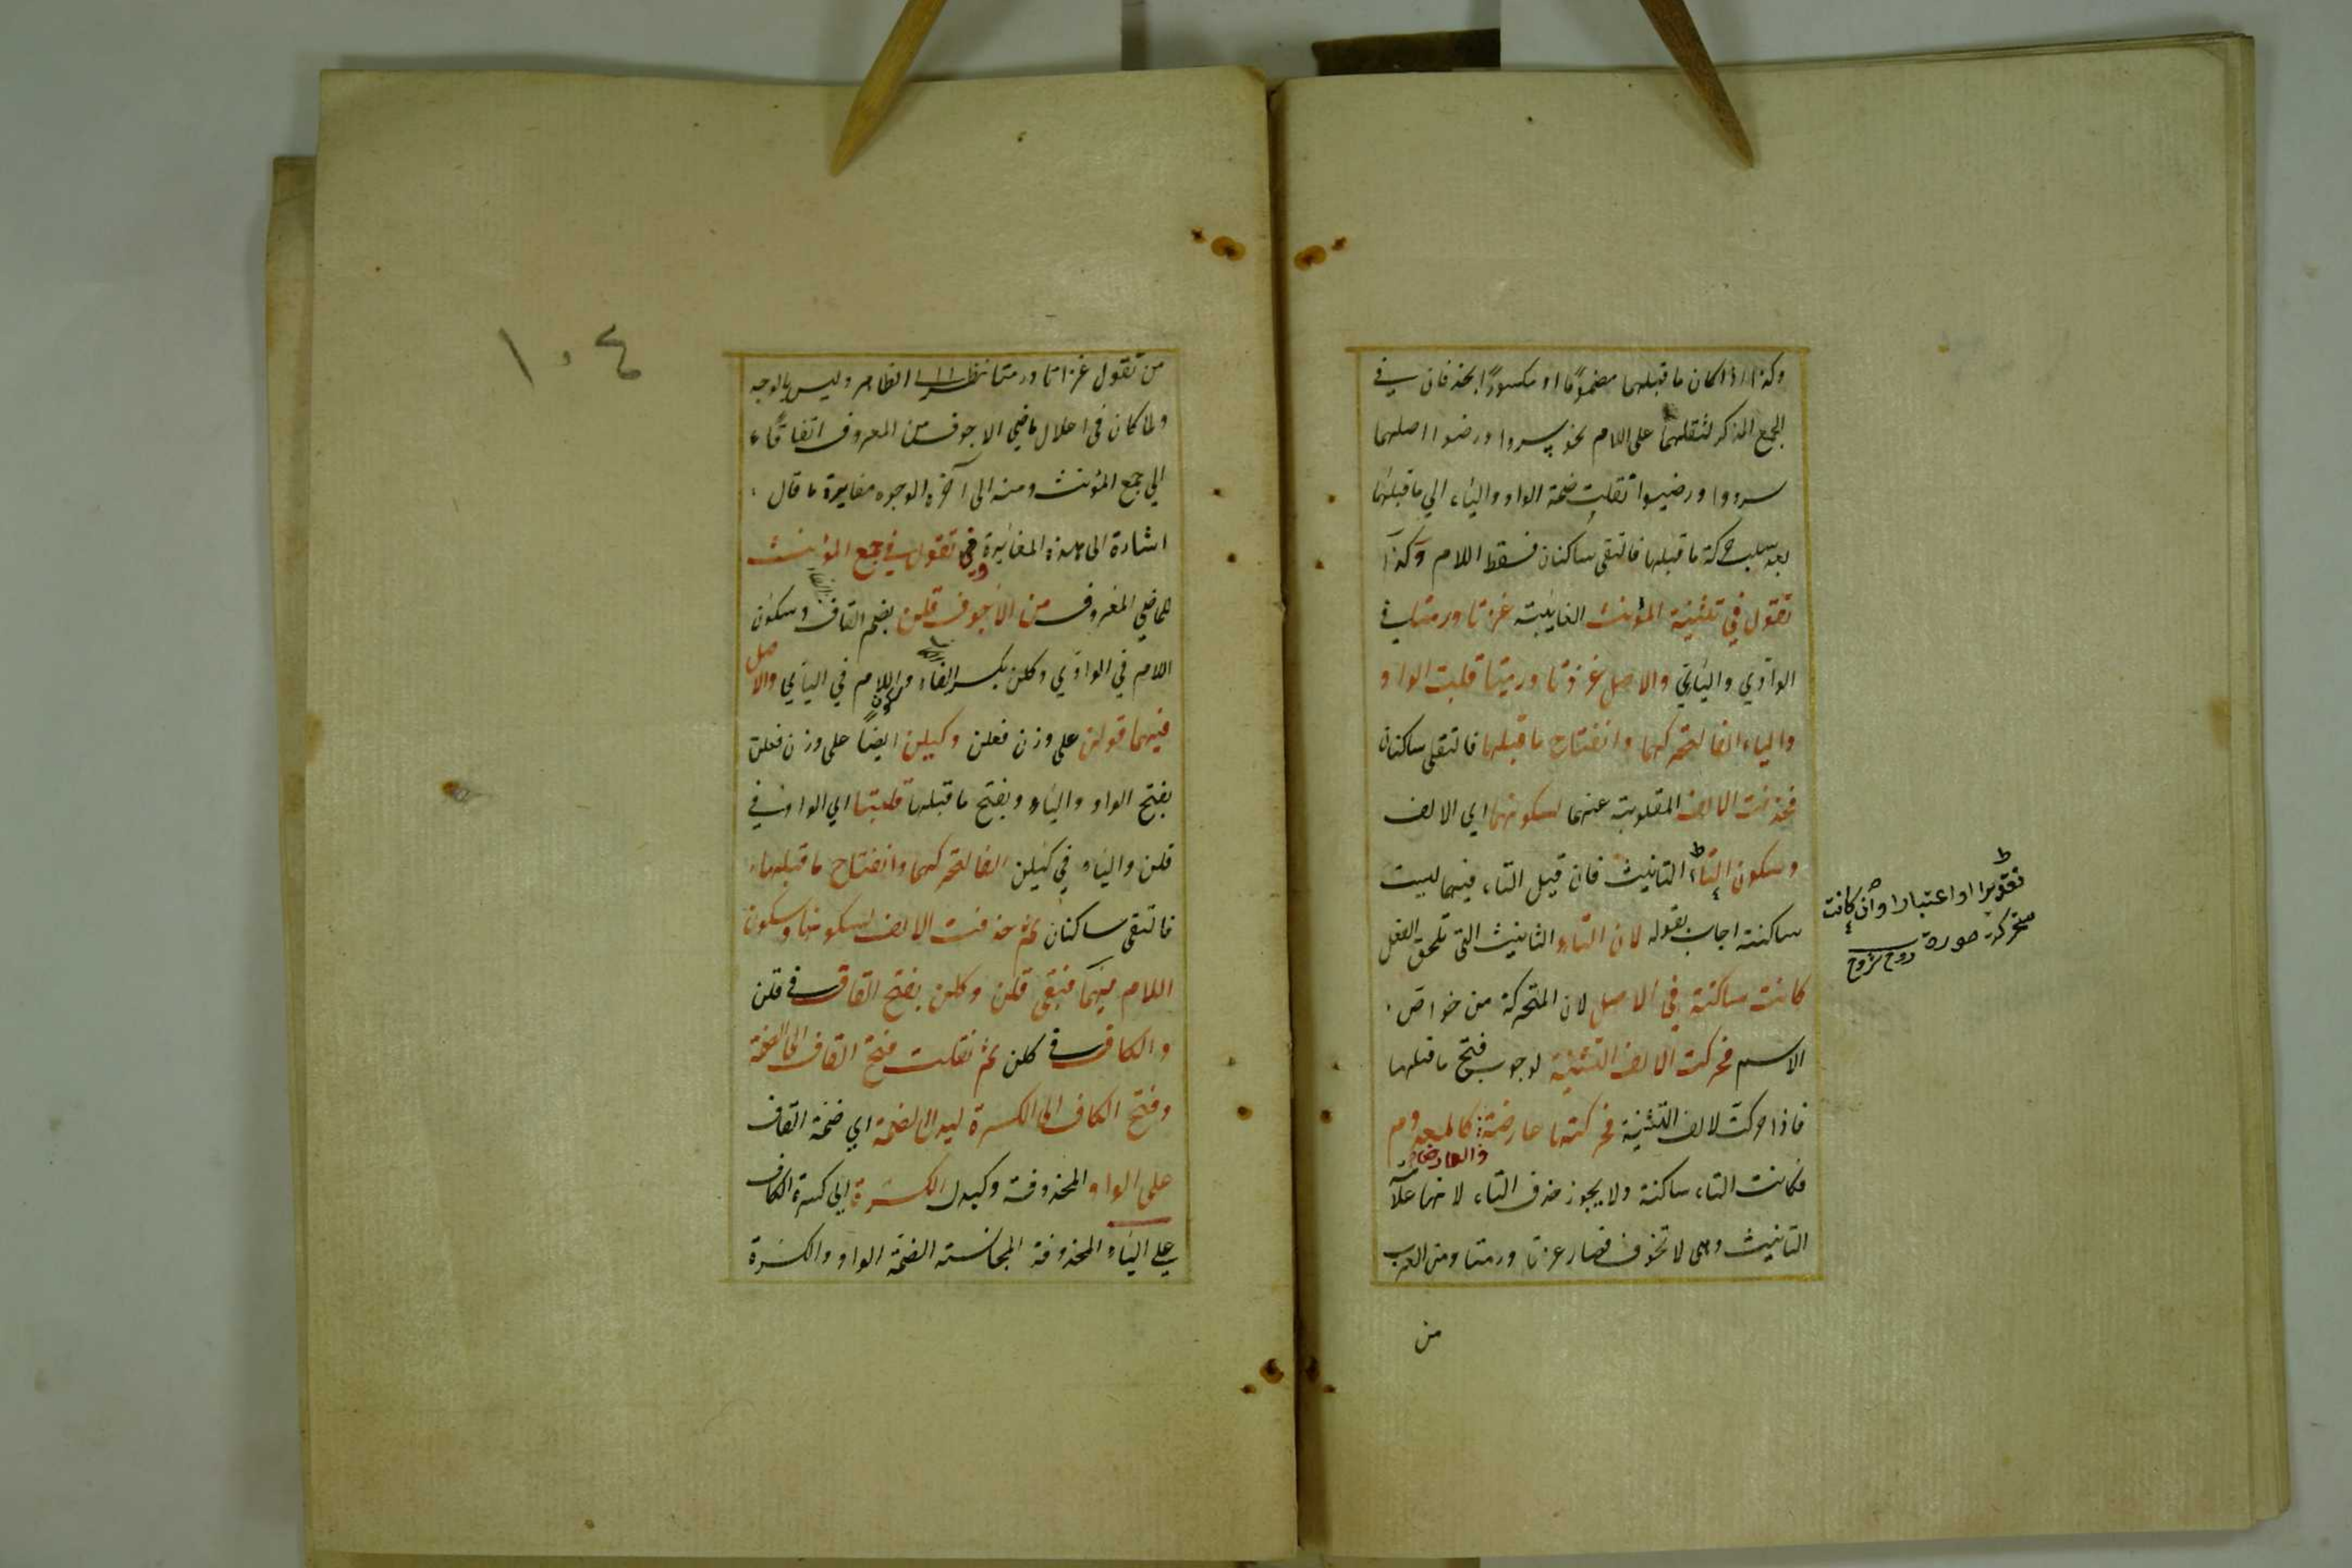 وكذا اذا كان ما قبلهما مضموما او مكسورا يحذفان في
الجمع المذكر لثقلهما على اللام نحو سروا ورضوا اصلهما
سرووا ورضيوا نقلت ضمة الواو والياء الي ما قبلها
بعد سلب حركة ما قبلها فالتقى ساكنان فسقط اللام وكذا
تقول في تثنية المؤنث الغايبة غزتا ورمتا في
الواوي واليائي والاصل غزوتا ورميتا قلبت الواو
والياء الفا لتحركهما وانفتاح ما قبلهما فالتقى ساكنان
فحذفت الالف المقلوبة عنهما لسكونها اي الالف
وسكون التاء التانيث فان قيل التاء فيهما ليست
ساكنته اجاب بقوله لان التاء التانيث التي تلحق الفعل
كانت ساكنة في الاصل لان المتحركة من خواص
الاسم فحركت الالف التثنية لوجوب فتح ما قبلها
فاذا حركت لالف التثنية فحركتها عارضة والعارض كالمعدوم
فكانت التاء ساكنة ولا يجوز حذف التاء لانها علا
التانيث وهي لا تحذف فصار غزتا ورمتا ومن العرب
من
تقديرا او اعتبارا وان كانت
متحركة صورة روح شروح
١٠٤
من تقول غزاتا ورمتا نظرا الى الظاهر وليس بالوجه
ولما كان في اعلال ماضي الاجوف من المعروف اتفاقا
الي جمع المؤنث ومنه الى آخره الوجوه مغايرة ما قال
اشارة الى هذه المغايرة وتقول في جمع المؤنث
للماضي المعروف من الاجوف قلن بضم القاف وسكون
اللام في الواوي وكلن بكسر الفاء وسكون اللام في اليائي والاصل
فيهما قولن على وزن فعلن وكيلن ايضا على وزن فعلن
بفتح الواو والياء وبفتح ما قبلها قلبتا اي الواو في
قلن والياء في كيلن الفا لتحركهما وانفتاح ما قبلهما
فالتقى ساكنان ثم حذفت الالف لسكونها وسكون
اللام فيهما فبقى قلن وكلن بفتح القاف في قلن
والكاف في كلن ثم نقلت فتح القاف الى الضمة
وفتح الكاف الى الكسرة ليدل الضمة اي ضمة القاف
على الواو المحذوفة وكيدل الكسرة اي كسرة الكاف
على الياء المحذوفة المجانسته الضمة الواو والكسرة